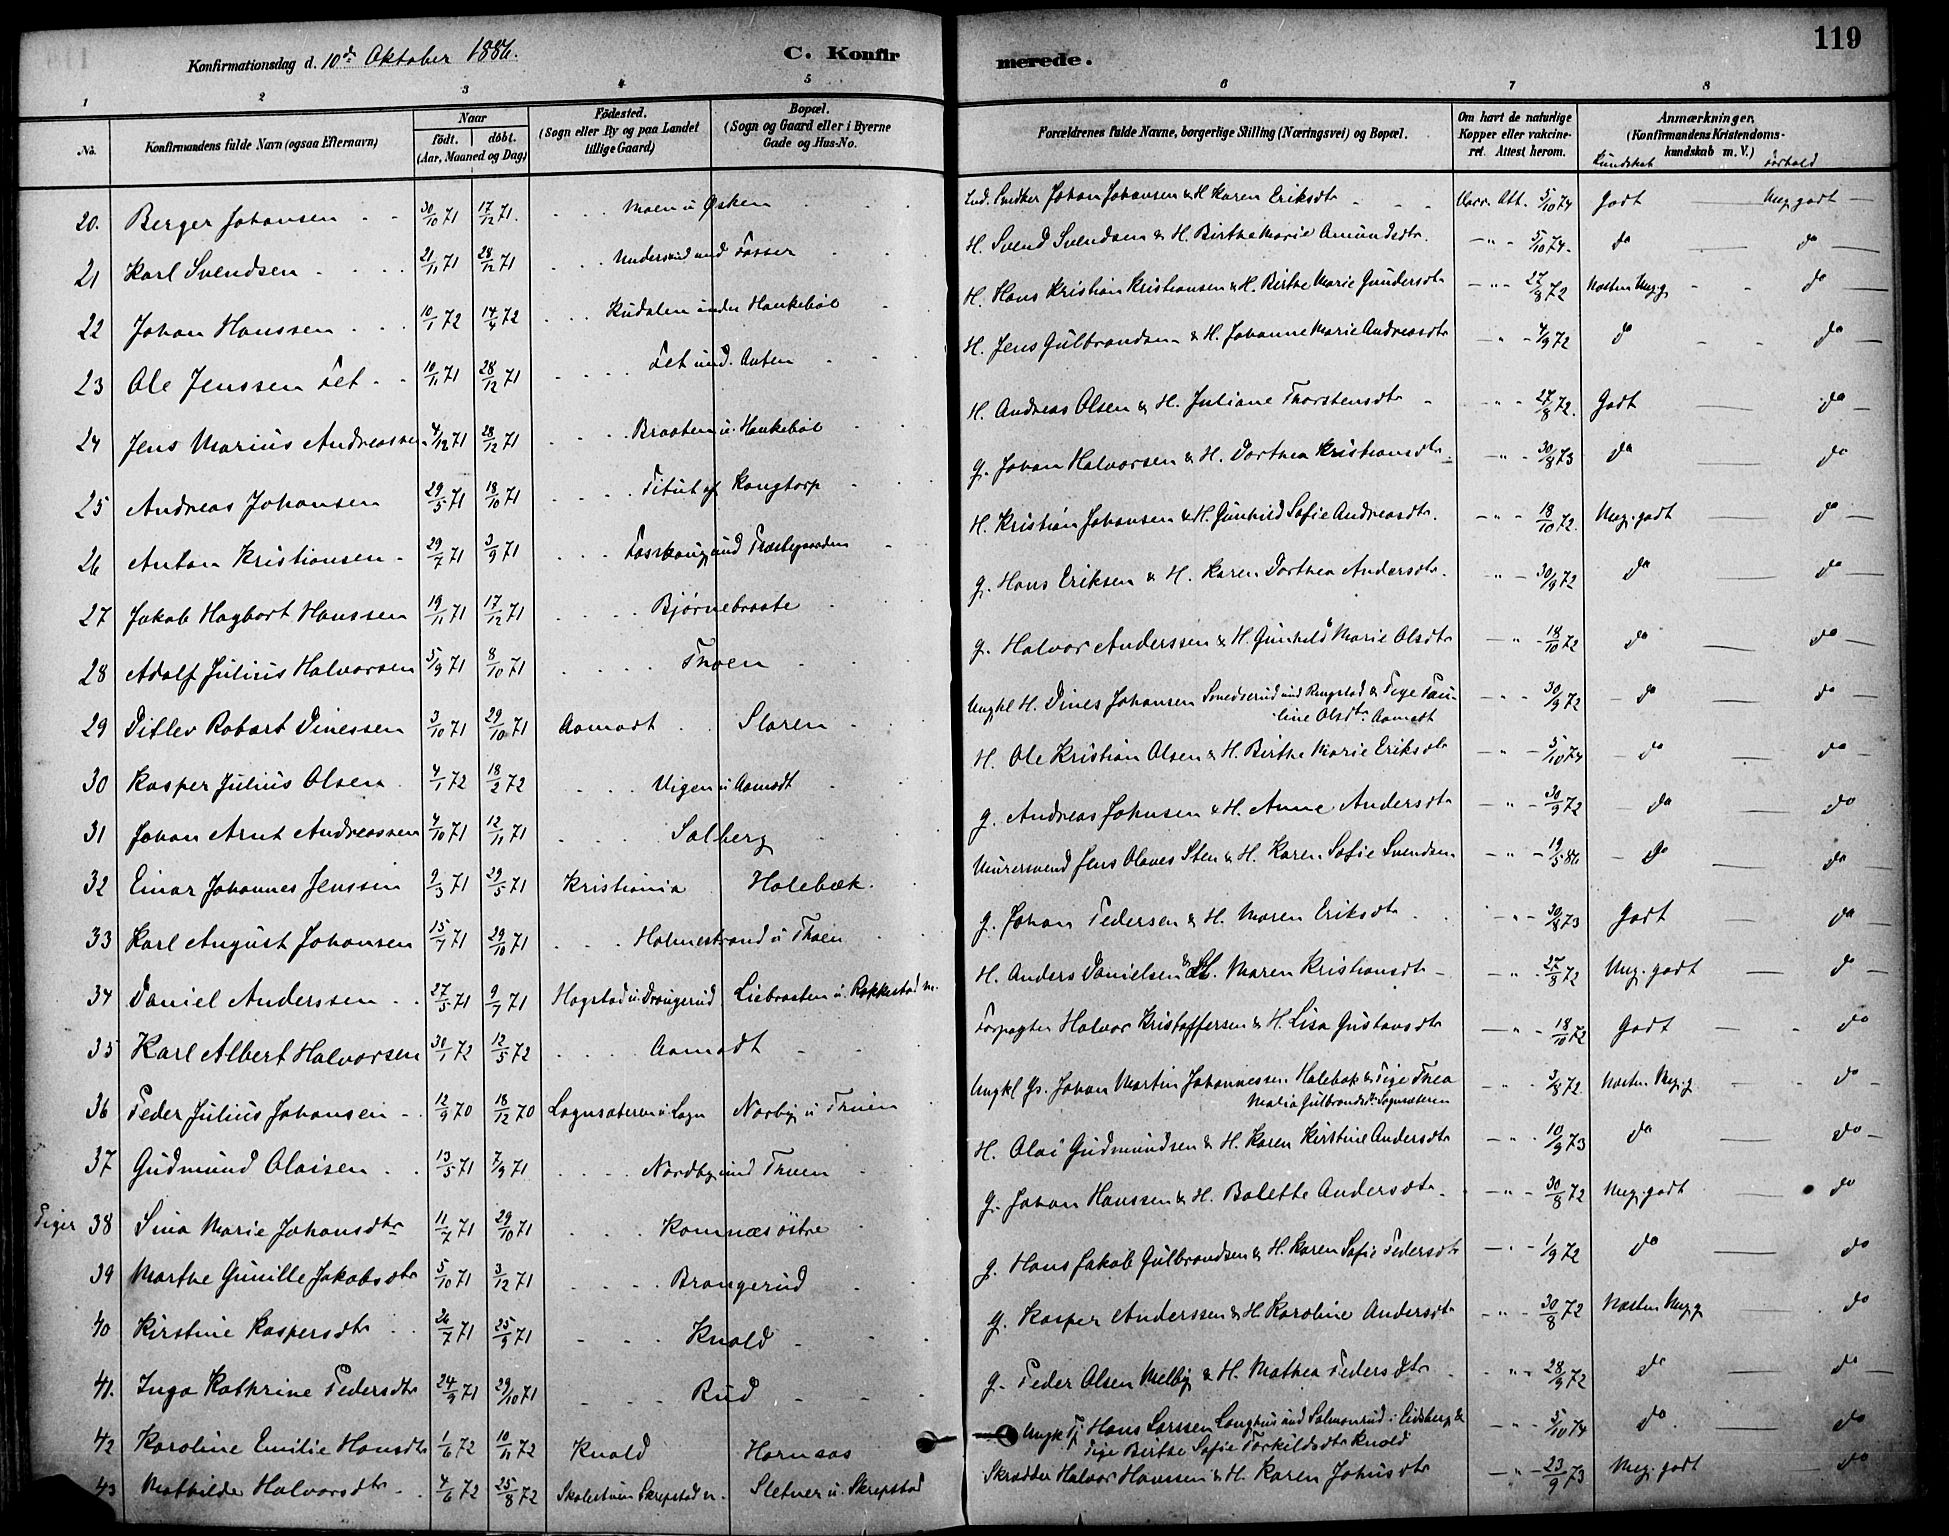 119
Konfirmationsdag d. 10de Oktober 1886.
C. Konfirmerede.
1 2 3 4 5 6 7 8
No.
Konfirmandens fulde Navn (ogsaa Efternavn)
Naar
født. døbt.
(Aar, Maaned og Dag)
Fødested.
(Sogn eller By og paa Landet
tillige Gaard)
Bopæl.
(Sogn og Gaard eller i Byerne
Gade og Hus-No.
Forældrenes fulde Navne, borgerlige Stilling (Næringsvei) og Bopæl.
Om havt de naturlige
Kopper eller vakcine-
ret. Attest herom.
Anmærkninger.
(Konfirmandens Kristendoms-
kundskab m. V.)
Kundskab Forhold
20. Berger Johansen 30/10 71 17/12 71. Moen u Øsken Johan Johansen & H. Karen Eriksdtr Vacc. Att. 5/10 74 Godt Meg. godt
21 Karl Svendsen 21/11 71 28/12 71 und Fosser H. Svend Svendsen & H. Birthe Marie Amundsdtr. 5/10 74. do do
22 Johan Hanssen 10/1 72 14/4 72 Rudalen under Haukebøl H. Hans Kristian Kristiansen & H. Birthe Marie Gundersdtr 27/8 72 Næsten Meg. g do
23 Ole Jenssen Fet 10/11 71 28/12 71 Fet und. Auten H. Jens Gulbrandsen & H. Johanne Marie Andreasdtr 4/9 72 do do
24 Jens Marius Andreassen 4/12 71 28/12 71 Braaten u. Haukebøl H. Andreas Olsen & H. Juliane Thorstensdtr 27/8 72. Godt do
25 Andreas Johansen 29/5 71 18/10 71 Titut af Kangtorp g. Johan Halvorsen & H. Dorthea Kristiansdtr 30/8 73 do do
26 Anton Kristiansen 29/7 71 3/9 71 und Præstegaarden H. Kristian Johansen & H. Gunhild Sofie Andreasdtr. 18/10 72. Meg. godt do
27 Jakob Hagbart Hanssen 19/11 71 17/12 71 Bjørnebraate g. Hans Eriksen & H. Karen Dorthea Andersdtr. 30/9 72 do do
28 Adolf Julius Halvorsen 5/9 71 8/10 71 Thoen g. Halvor Anderssen & H. Gunhild Marie Olsdtr 18/10 72 do do
29 Ditlev Robert Dinessen 3/10 71 29/10 71 Aamodt Staren Ungkl H. Dines Johansen Smedserud und Ringstad & Pige Pau-
line Olsdtr Aamodt 30/9 72 do do
30 Kasper Julius Olsen 4/1 72 18/2 72 Vigen u Aamodt H. Ole Kristian Olsen & H. Birthe Marie Eriksdtr 5/10 74 do do
31 Johan Arnt Andreassen 4/10 71 12/11 71 Solberg g. Andreas Johnsen & H. Anne Andersdtr 30/9 72 do do
32 Einar Johannes Jenssen 9/3 71 29/5 71 Kristiania Holebæk. Murersvend Jens Olaves Sten & H. Karen Sofie Svendsen 19/5 86 do do
33 Karl August Johansen 15/7 71 29/10 71 Holmestrand u Thoen g. Johan Pedersen & H. Maren Eriksdtr 30/8 73 Godt do
34 Daniel Anderssen 27/5 71 9/7 71 Hogstad u. Drangerud Liebraaten u. Rakkestad H. Anders Danielsen & H. Maren Kristiansdtr 27/8 72 Meg. godt do
35 Karl Albert Halvorsen 30/1 72 12/5 72 Aamodt Forpagter Halvor Kristoffersen & H. Lisa Gustavsdtr 18/10 72 Godt do
36 Peder Julius Johansen 12/9 70 18/12 70 Lognsæteren u. Logn Nordby u Thoen Ungkl Gs. Johan Martin Johannessen Holebæk & Pige Thea
Malia Gulbrandsdtr Lognsæteren 3/8 72. Næsten Meg. g do
37 Gudmund Olaisen 13/5 71 7/9 71 Nordby und Thoen H. Olai Gudmundsen & H. Karen Kirstine Andersdtr 10/9 73 do do
Piger 38 Sina Marie Johansdtr 11/7 71 29/10 71 Komnæs østre g. Johan Hanssen & H. Bolette Andersdtr. 30/8 72 Meg. godt do
39 Marthe Gunille Jakobsdtr 5/10 71 3/12 71 Brangerud g. Hans Jakob Gulbrandsen & H. Karen Sofie Pedersdtr 1/9 72 do do
40 Kirstine Kaspersdtr 26/7 71 25/9 71 Knold g. Kasper Anderssen & H Karoline Andersdtr 30/8 72 Næsten Meg. g do
41. Inga Kathrine Pedersdtr 24/9 71 29/10 71 Rud g. Peder Olsen Melby & H. Mathea Pedersdtr 28/9 72 do do
42 Karoline Emilie Hansdtr 1/6 72 10/11 72 Knold Hornaas Ungk Tj Hans Larssen Langhus und Salmonrud i Eidsberg &
Pige Birthe Sofie Torkildsdtr Knold 5/10 74 do do
43 Mathilde Halvorsdtr 4/6 72 25/8 72 Skrepstad Sletner u. Skrepstad Skrædder Halvor Hanssen & H. Karen Johnsdtr 23/9 73 Meg. godt do